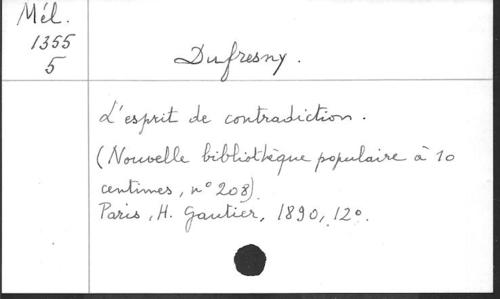 Mél.
1355
5
Dufresny.
L'esprit de contradiction.
(Nouvelle bibliothèque populaire à 10
centimes, n° 208).
Paris, H. Gautier, 1890, 12°.